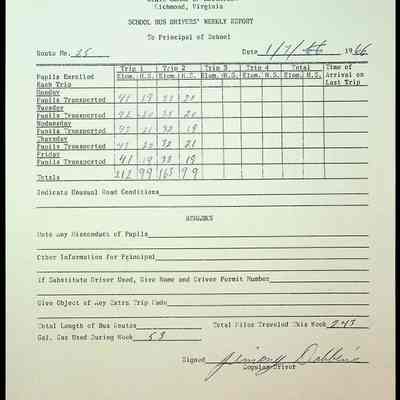 Richmond, Virginia
SCHOOL BUS DRIVERS' WEEKLY REPORT
To Principal of School
Route No. 25 Date 1/7/66 1966
Trip 1 Trip 2 Trip 3 Trip 4 Total Time of
Pupils Enrolled Elem. H.S. Elem. H.S. Elem. H.S. Elem. H.S. Elem. H.S. Arrival on
Each Trip Last Trip
Monday
Pupils Transported 41 19 20
Tuesday
Pupils Transported 20 20
Wednesday
Pupils Transported 21 32 19
Thursday
Pupils Transported 32 21
Friday
Pupils Transported 41 19 19
Totals 212 99 165 99
Indicate Unusual Road Conditions
REMARKS
Note Any Misconduct of Pupils
Other Information for Principal
If Substitute Driver Used, Give Name and Driver Permit Number
Give Object of Any Extra Trip Made
Total Length of Bus Routes Total Miles Traveled This Week 243
Gal. Gas Used During Week 53
Signed Jimmy Dobbins
Regular Driver